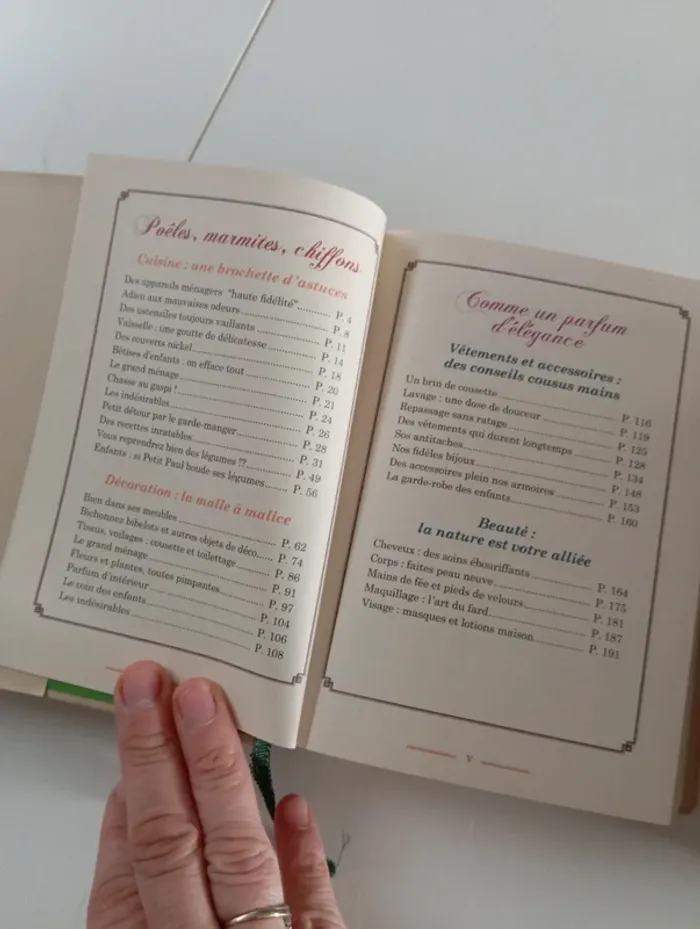 Poêles, marmites, chiffons
Cuisine : une brochette d'astuces
Des appareils ménagers "haute fidélité" ........... P. 4
Adieu aux mauvaises odeurs ........... P. 8
Des ustensiles toujours vaillants ........... P. 11
Vaisselle : une goutte de délicatesse ........... P. 14
Des couverts nickel ........... P. 18
Bêtises d'enfants : on efface tout ........... P. 20
Le grand ménage ........... P. 21
Chasse au gaspi ! ........... P. 24
Les indésirables ........... P. 26
Petit détour par le garde-manger ........... P. 28
Des recettes inratables ........... P. 31
Vous reprendrez bien des légumes !? ........... P. 49
Enfants : si Petit Paul boude ses légumes ........... P. 56
Décoration : la malle à malice
Bien dans ses meubles ........... P. 62
Bichonnez bibelots et autres objets de déco ........... P. 74
Tissus, voilages : cousette et toilettage ........... P. 86
Le grand ménage ........... P. 91
Fleurs et plantes, toutes pimpantes ........... P. 97
Parfum d'intérieur ........... P. 104
Le coin des enfants ........... P. 106
Les indésirables ........... P. 108
Comme un parfum
d'élégance
Vêtements et accessoires :
des conseils cousus mains
Un brin de cousette ........... P. 116
Lavage : une dose de douceur ........... P. 119
Repassage sans ratage ........... P. 125
Des vêtements qui durent longtemps ........... P. 128
Sos antitaches ........... P. 134
Nos fidèles bijoux ........... P. 148
Des accessoires plein nos armoires ........... P. 153
La garde-robe des enfants ........... P. 160
Beauté :
la nature est votre alliée
Cheveux : des soins ébouriffants ........... P. 164
Corps : faites peau neuve ........... P. 175
Mains de fée et pieds de velours ........... P. 181
Maquillage : l'art du fard ........... P. 187
Visage : masques et lotions maison ........... P. 191
V